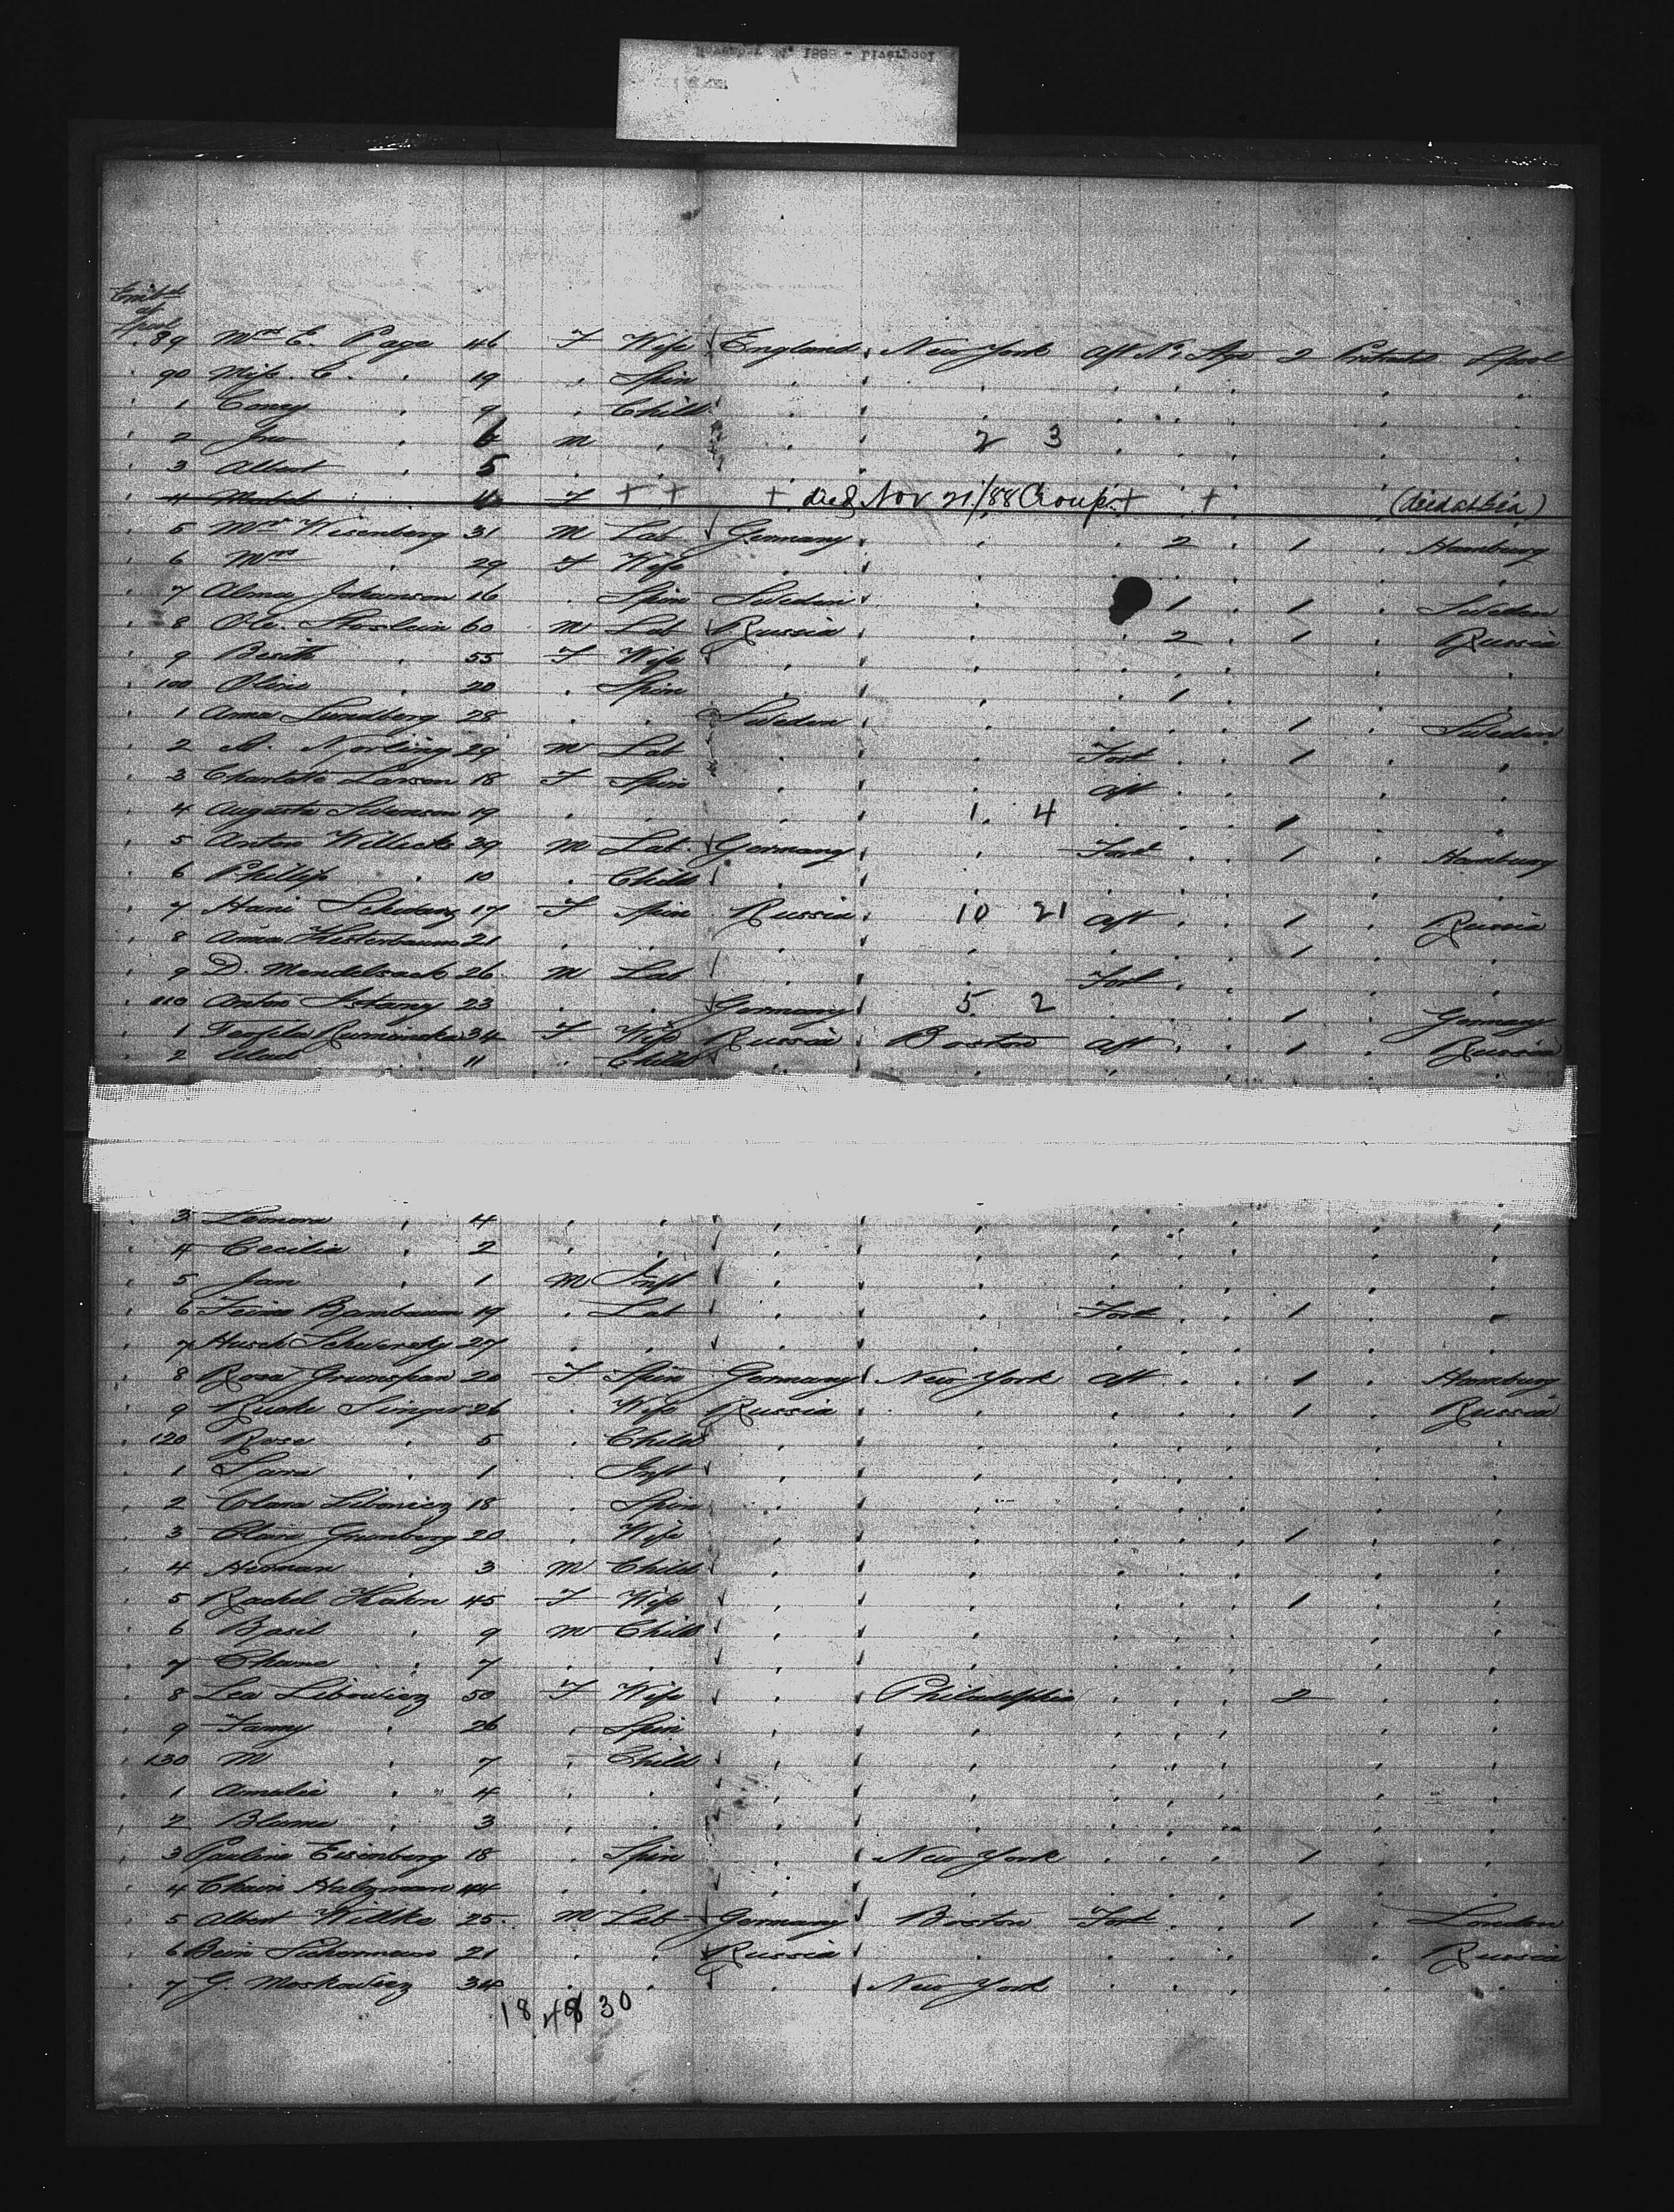 89 Mrs E. Page 46 F Wife England New York Aft No Age 2 Protracted Lpool
90 Miss C. " 19 " Spin " " " " " " " "
1 " 9 " Child " "
2 Jno " 6 M " " 2 3
3 Albert " 5 " " "
4 Mabel " F + + + died Nov 21/88 Croup + + (died at Sea)
5 Mr Wisenberg 31 M Lab Germany " " 2 " 1 " Hamburg
6 Mrs " 29 F Wife " "
7 Alma Johanson 16 " Spin Sweden " 1 " 1 " Sweden
8 Ole 60 M Lab Russia " " 2 " 1 " Russia
9 " 55 F Wife " "
100 Oline " 20 " Spin " " " 1
1 Anna Lundberg 28 " " Sweden " " " " 1 " Sweden
2 A. Norling 29 M Lab " " Ford " " 1 " "
3 Charlotte Larson 18 F Spin " " Aft " "
4 Augusta Swenson 19 " " " 1. 4 " " " 1 " "
5 Anton Willeck 39 M Lab Germany " Ford " " 1 " Hamburg
6 Phillip " 10 " Child " "
7 Hani Schwarz 17 F Spin Russia 10 21 Aft " " 1 " Russia
8 Anna Kesterbaum 21 " " " " " " " 1 " "
9 D. Mendelsack 26 M Lab " " Ford " "
110 Anton 23 " " Germany 5 2 " " " 1 " Germany
1 Teofila Ruminska 34 F Wife Russia Boston Aft " " 1 " Russia
2 " 11 " Child " "
3 Leonora " 4 " " " "
4 Cecilia " 2 " " " "
5 Jan " 1 M Inft " "
6 19 " Lab " " Ford " " 1 " "
7 27 " " " "
8 Rosa Grunspan 20 F Spin Germany New York Aft " " 1 " Hamburg
9 Singer 26 " Wife Russia " " " " 1 " Russia
120 Rose " 5 " Child " "
1 Sara " 1 " Inft " "
2 Clara Libowicz 18 " Spin " "
3 Grunberg 20 " Wife " " " " " 1 " "
4 Herman " 3 M Child " "
5 Rachel Kahn 45 F Wife " " " " " 1 " "
6 Basil " 9 M Child " "
7 " 7 " " " "
8 Lea Libowicz 50 F Wife " Philadelphia " " " 2 " "
9 Fanny " 26 " Spin " "
130 M " 7 " Child " "
1 Amalie " 4 " " " "
2 Blume " 3 " " " "
3 Paulina Eisenberg 18 " Spin " New York " " " 1 " "
4 Holzman 44 " " " "
5 Albert Willke 25 M Lab Germany Boston Ford " " 1 " London
6 21 " " Russia " " " " " " Russia
7 G. Moskowicz 34 " " " New York " " " " " "
18 48 30